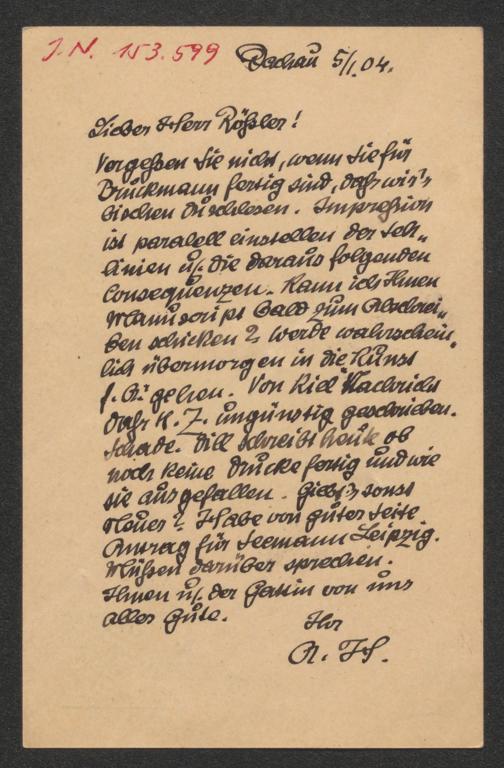 J. N. 153.599
Dachau 5/I. 04.
Lieber Herr Rößler!
Vergeßen Sie nicht, wenn Sie für
Bruckmann fertig sind, daß wir's
bischen durchlesen. Impreßion
ist paralell einstellen der Seh„
linien u. die daraus folgenden
Consequenzen. Kann ich Ihnen
Manuscript bald zum Abschrei„
ben schicken? Werde wahrschein„
lich übermorgen in die Kunst
f. A. gehen. Von Kiel Nachricht
daß K. Z. ungünstig geschrieben.
Schade. Dill schreibt heute ob
noch keine Drucke fertig und wie
sie ausgefallen. Giebt's sonst
Neues? Habe von guter Seite
Antrag für Seemann Leipzig.
Müßen darüber sprechen.
Ihnen u. der Gattin von uns
alles Gute.
Ihr
A. H.